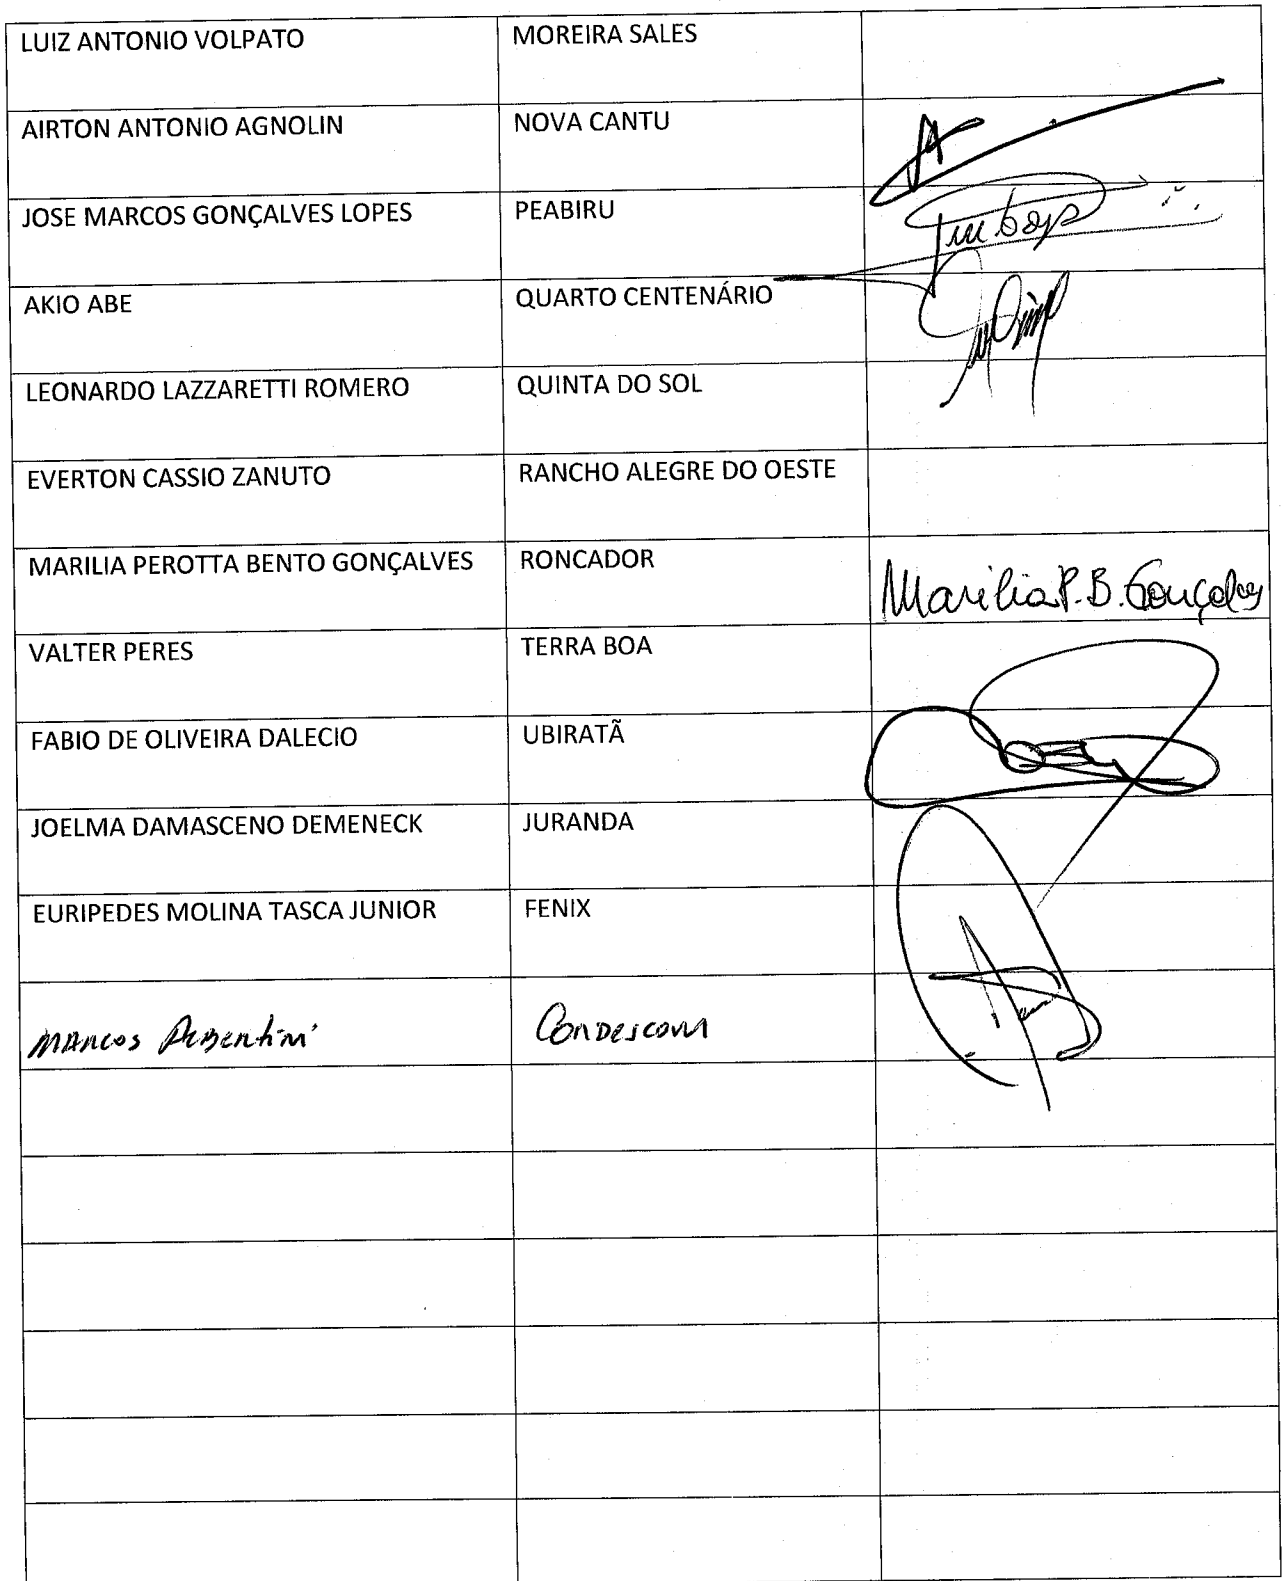 LUIZ ANTONIO VOLPATO MOREIRA SALES
AIRTON ANTONIO AGNOLIN NOVA CANTU
JOSE MARCOS GONÇALVES LOPES PEABIRU
AKIO ABE QUARTO CENTENÁRIO
LEONARDO LAZZARETTI ROMERO QUINTA DO SOL
EVERTON CASSIO ZANUTO RANCHO ALEGRE DO OESTE
MARILIA PEROTTA BENTO GONÇALVES RONCADOR Marilia P. B. Gonçalves
VALTER PERES TERRA BOA
FABIO DE OLIVEIRA DALECIO UBIRATÃ
JOELMA DAMASCENO DEMENECK JURANDA
EURIPEDES MOLINA TASCA JUNIOR FENIX
MARCOS Condescom